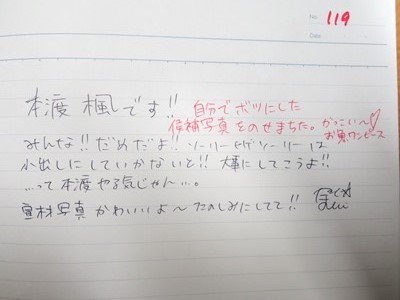 No. 119
Date
本渡 楓です!!
自分でボツにした
候補写真をのせまちた。かっこい〜♡
お魚ワンピース
みんな!!だめだよ!! ソーリー ソーリーは
小出しにしていかないと!! 大事にしてこうよ!!
...って本渡やる気じゃん...。
宣材写真かわいいよ〜たのしみにしてて!!